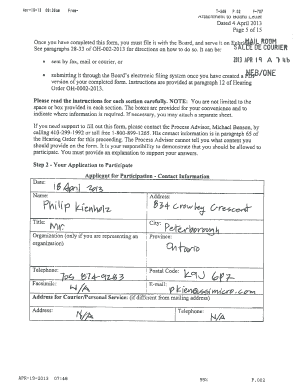 Apr-19-13 09:28am From-
T-608 P.02 F-707
Attachment to Board Letter
Dated 4 April 2013
Page 5 of 13
Once you have completed this form, you must file it with the Board, and serve it on
See paragraphs 28-33 of OH-002-2013 for directions on how to do so. It can be:
MAIL ROOM
SALLE DE COURIER
• sent by fax, mail or courier, or
2013 APR 19 A 7:46
• submitting it through the Board's electronic filing system once you have created a PDF
version of your completed form. Instructions are provided at paragraph 12 of Hearing
Order OH-0002-2013.
NEB/ONE
Please read the instructions for each section carefully. NOTE: You are not limited to the
space or boxes provided in each section. The boxes are provided for your convenience and to
indicate where information is required. If necessary, you may attach a separate sheet.
If you need support to fill out this form, please contact the Process Advisor, Michael Benson, by
calling 403-299-1992 or toll free 1-800-899-1265. His contact information is in paragraph 65 of
the Hearing Order for this proceeding. The Process Advisor cannot tell you what content you
should provide on the form. It is your responsibility to demonstrate that you should be allowed to
participate. You must provide an explanation to support your answers.
Step 2 - Your Application to Participate
Applicant for Participation - Contact Information
Date: 18 April 2013
Name: Philip Kienholz
Address: 834 Crowley Crescent
Title: Mr.
City: Peterborough
Organization (only if you are representing an
organization)
Province: Ontario
Telephone: 705 874-9283
Postal Code: K9J 6P7
Facsimile: N/A
E-mail: pkien@ssimicro.com
Address for Courier/Personal Service: (if different from mailing address)
Address: N/A
Telephone: N/A
APR-19-2013 07:48
99%
P.002